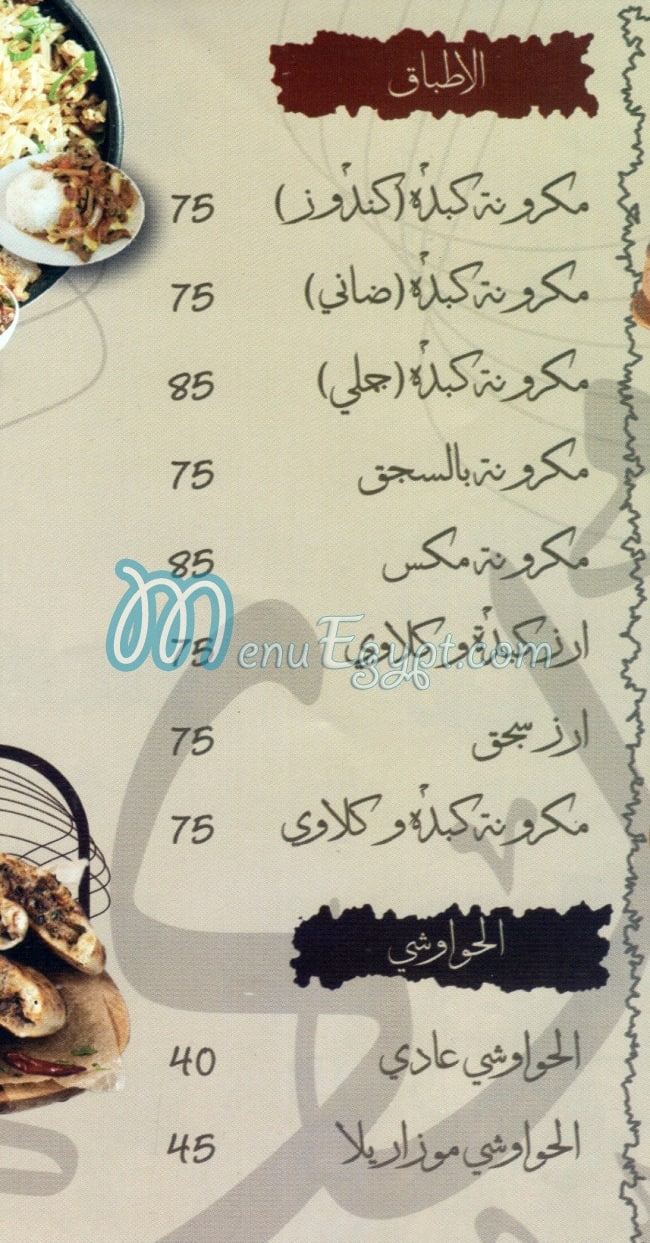 الاطباق
مكرونة كبدة (كندوز) 75
مكرونة كبدة (ضاني) 75
مكرونة كبدة (جملي) 85
مكرونة بالسجق 75
مكرونة مكس 85
ارز كبدة وكلاوي 75
MenuEgypt.com
ارز سجق 75
مكرونة كبدة وكلاوى 75
الحواوشي
الحواوشي عادي 40
الحواوشي موزاريلا 45